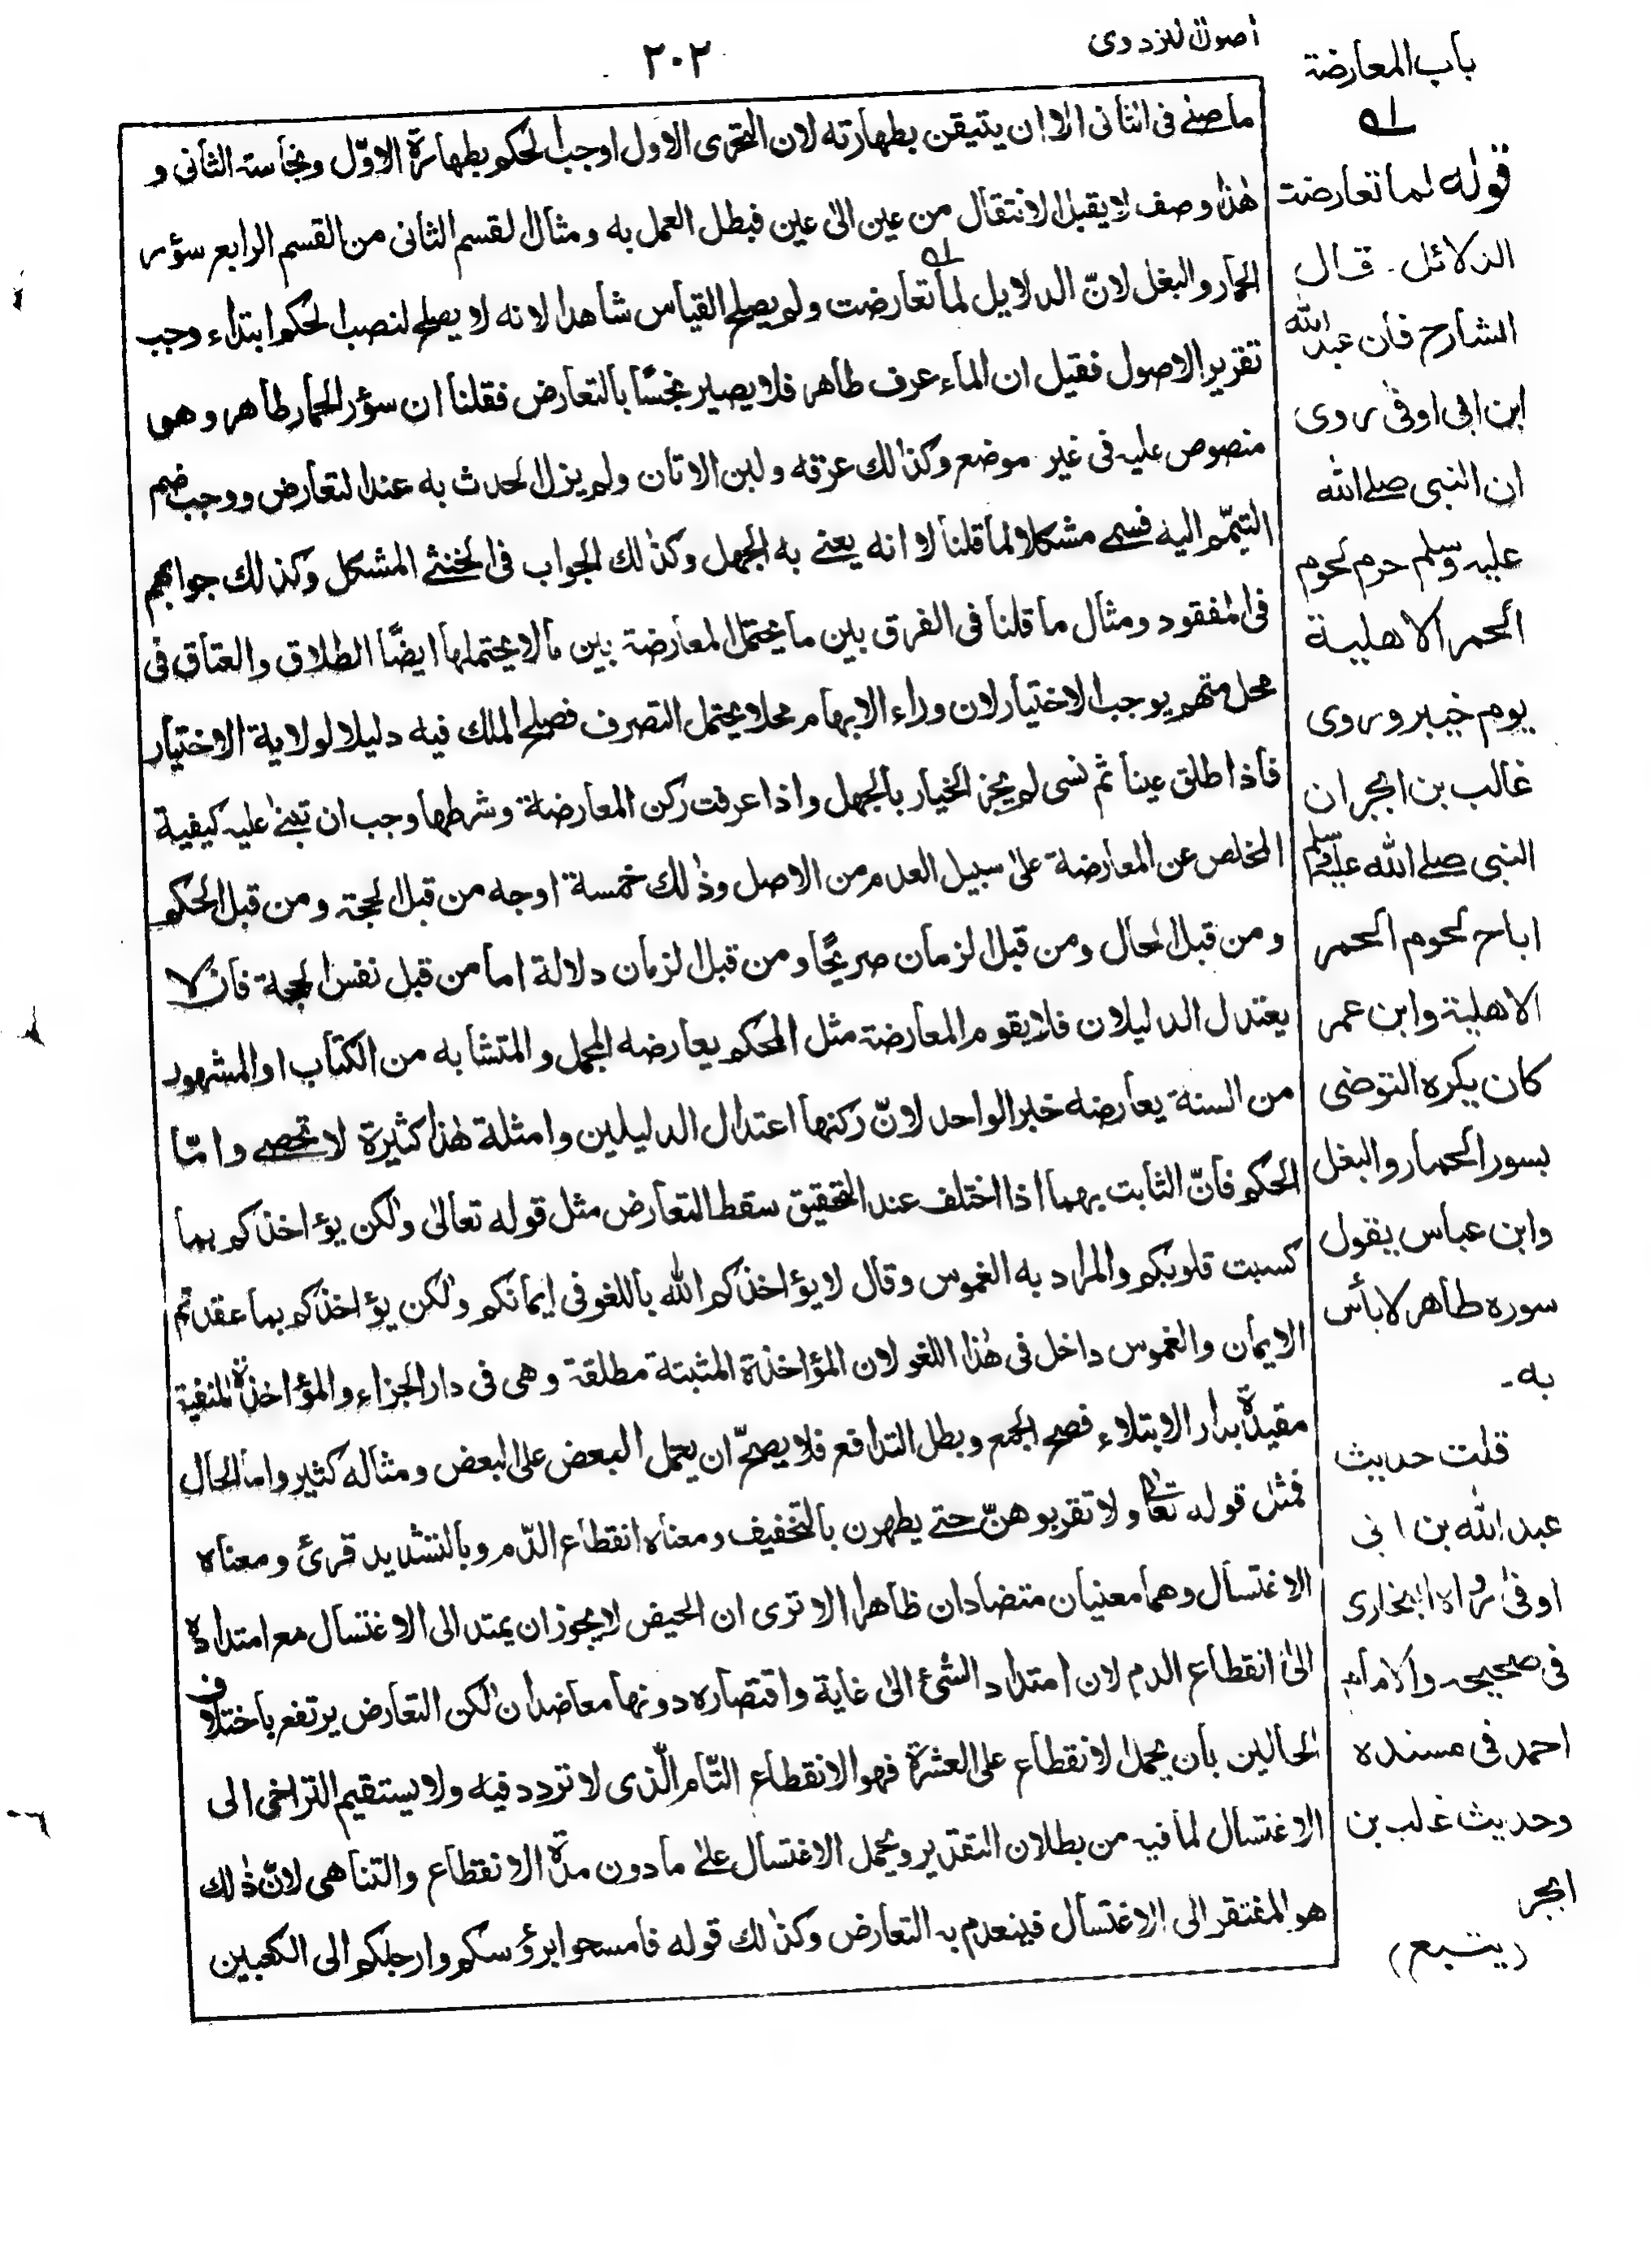 باب المعارضة
اصول البزدوی
٢٠٢
ما صلے فی الثانی الا ان یتیقن بطهارته لان التحری الاول اوجب الحکم بطهارة الاوّل ونجاسة الثانی و
هٰذا وصف لا یقبل الانتقال من عین الیٰ عین فبطل العمل به ومثال القسم الثانی من القسم الرابع سؤر
الحمار والبغل لانّ الدلایل لما تعارضت ولم یصلح القیاس شاهدا لانه لا یصلح لنصب الحکم ابتداء وجب
تقریر الاصول فقیل ان الماء عرف طاهر فلا یصیر نجسًا بالتعارض فقلنا ان سؤر الحمار طاهر وهو
منصوص علیه فی غیر موضع وکذلك عرقه ولبن الاتان ولم یزل الحدث به عند التعارض ووجب ضم
التیمّم الیه فسمی مشکلا لما قلنا لا انه یعنے به الجهل وکذلك الجواب فی الخنثے المشکل وکذلك جوابهم
فی المفقود ومثال ما قلنا فی الفرق بین ما یحتمل المعارضة بین مالا یحتملها ایضًا الطلاق والعتاق فی
محل متهم یوجب الاختیار لان وراء الابهام محلا یحتمل التصرف فصلح الملك فیه دلیلا لولایة الاختیار
فاذا طلق عینا ثم نسی لم یجز الخیار بالجهل واذا عرفت رکن المعارضة وشرطها وجب ان تبنے علیه کیفیة
المخلص عن المعارضة علیٰ سبیل العدم من الاصل وذٰلك خمسة اوجه من قبل الحجة ومن قبل الحکم
ومن قبل الحال ومن قبل الزمان صریحًا ومن قبل الزمان دلالة اما من قبل نفس الحجة فان لا
یعتدل الدلیلان فلا یقوم المعارضة مثل المحکم یعارضه المجمل والمتشابه من الکتاب او المشهور
من السنة یعارضه خبر الواحد لانّ رکنها اعتدال الدلیلین وامثلة هٰذا کثیرة لا تحصے وامّا
الحکم فانّ الثابت بهما اذا اختلف عند التحقیق سقط التعارض مثل قوله تعالیٰ ولٰکن یؤاخذکم بما
کسبت قلوبکم والمراد به الغموس وقال لا یؤاخذکم الله باللغو فی ایمانکم ولٰکن یؤاخذکم بما عقدتم
الایمان والغموس داخل فی هٰذا اللغو لان المؤاخذة المثبتة مطلقة وهی فی دار الجزاء والمؤاخذة المنفیة
مقیدة بدار الابتلاء فصح الجمع وبطل التدافع فلا یصحّ ان یحمل البعض علی البعض ومثاله کثیر واما الحال
فمثل قوله تعالٰی ولا تقربوهنّ حتے یطهرن بالتخفیف ومعناه انقطاع الدّم وبالتشدید قرئ ومعناه
الاغتسال وهما معنیان متضادان ظاهرا الا تری ان الحیض لا یجوز ان یمتد الی الاغتسال مع امتداده
الیٰ انقطاع الدم لان امتداد الشئ الیٰ غایة واقتصاره دونها معاضدان لکن التعارض یرتفع باختلاف
الحالین بان یحمل الانقطاع علی العشرة فهو الانقطاع التّام الّذی لا تردد فیه ولا یستقیم التراخی الی
الاغتسال لما فیه من بطلان التقدیر ویحمل الاغتسال علیٰ ما دون مدة الانقطاع والتناهی لانّ ذٰلك
هو المفتقر الی الاغتسال فینعدم به التعارض وکذلك قوله فامسحوا برؤسکم وارجلکم الی الکعبین
قوله لما تعارضت
الدلائل۔ قال
الشارح فان عبد الله
ابن ابی اوفیٰ روی
ان النبی صلے الله
علیه وسلم حرم لحوم
الحمر الاهلیة
یوم خیبر وروی
غالب بن ابجر ان
النبی صلے الله علیه وسلم
اباح لحوم الحمر
الاهلیة وابن عمر
کان یکره التوضی
بسور الحمار والبغل
وابن عباس یقول
سوره طاهر لا بأس
به۔
قلت حدیث
عبد الله بن ابی
اوفیٰ رواه البخاری
فی صحیحه والامام
احمد فی مسنده
وحدیث غالب بن
ابجر
(یتبع)